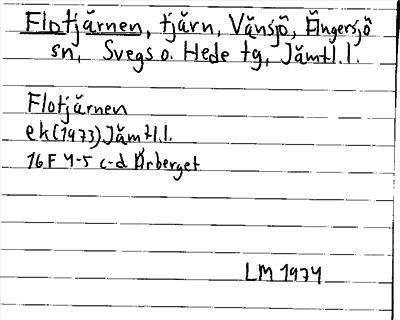 Flotjärnen, tjärn, Vänsjö, Ängersjö
sn, Svegs o. Hede tg, Jämtl.l.
Flotjärnen
ek(1973) Jämtl.l.
16F 4-5 c-d Börberget
LM 1974